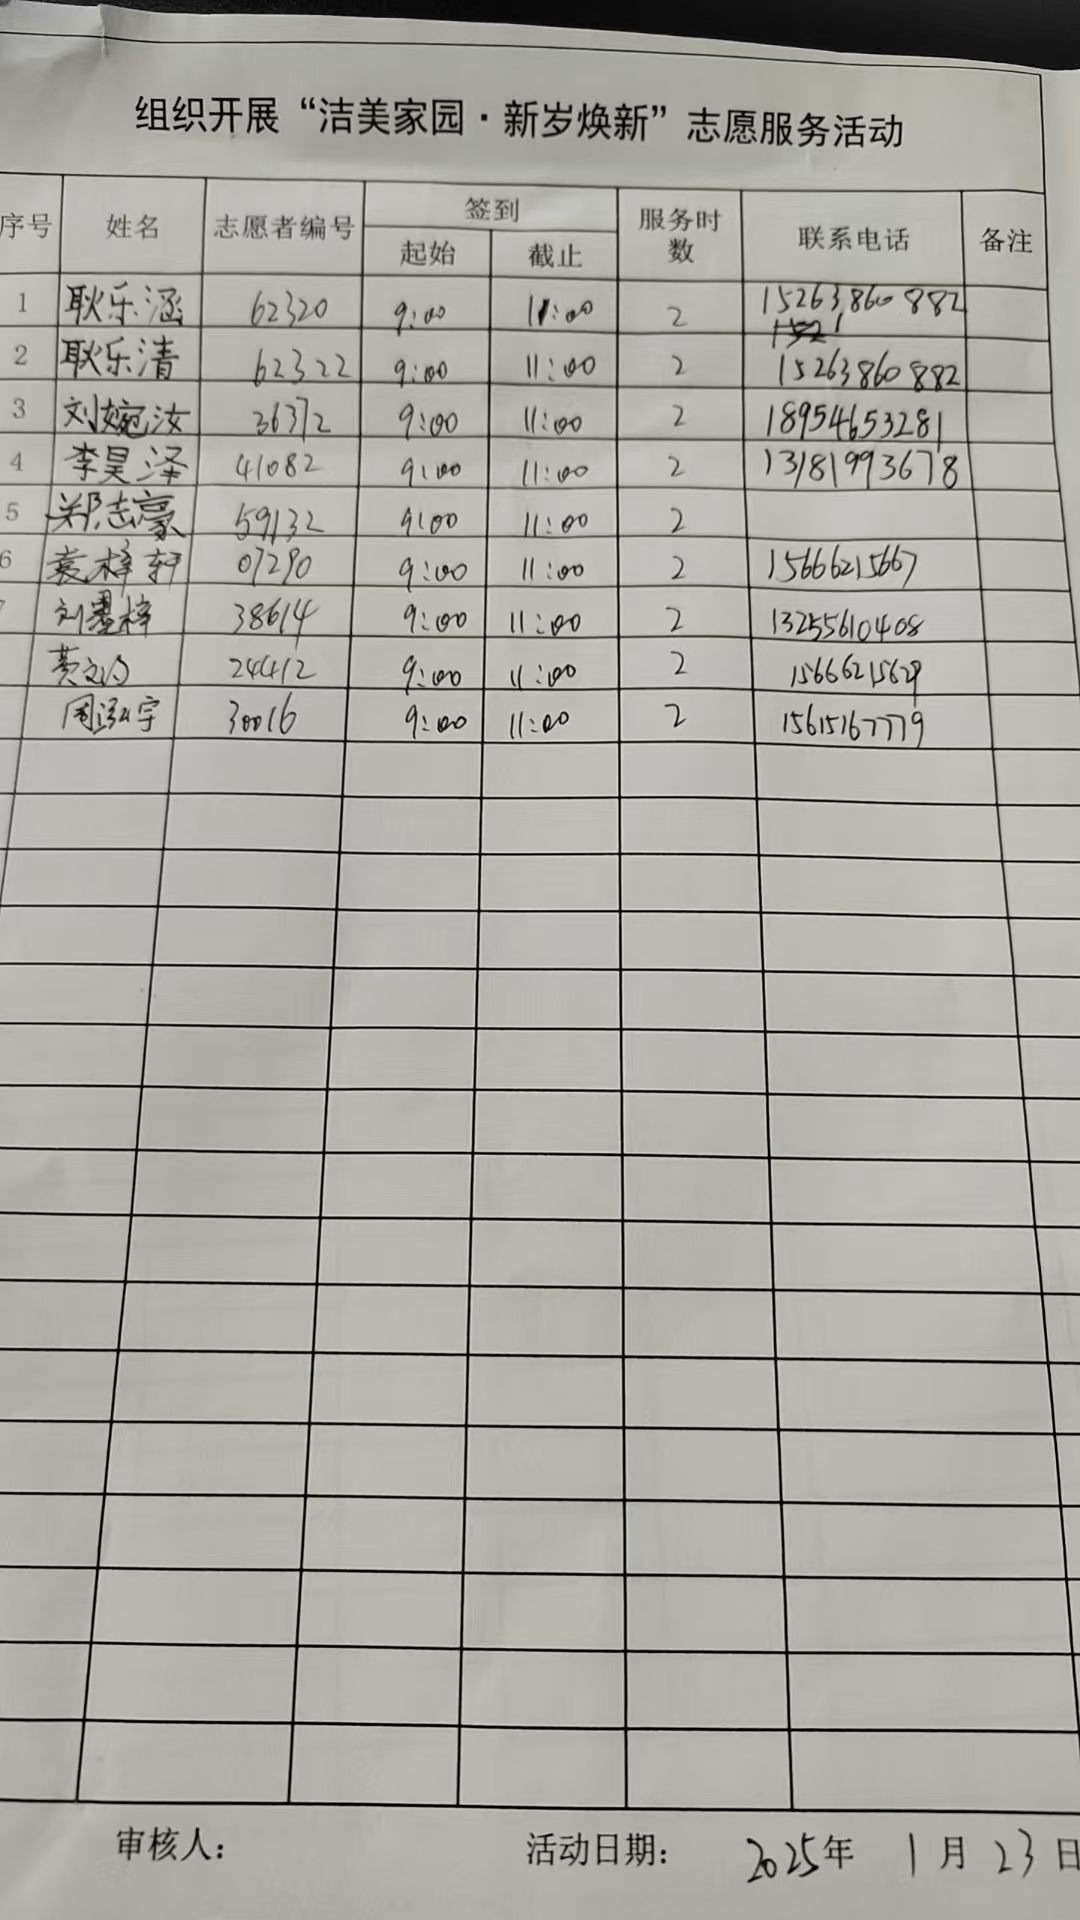 组织开展“洁美家园·新岁焕新”志愿服务活动
序号 姓名 志愿者编号 签到 服务时数 联系电话 备注
起始 截止
1 耿乐涵 62320 9:00 11:00 2 15263860882
2 耿乐清 62322 9:00 11:00 2 15263860882
3 刘婉汝 36372 9:00 11:00 2 18954653281
4 李昊泽 41082 9:00 11:00 2 13181993678
5 郑志豪 59132 9:00 11:00 2
6 袁梓轩 07290 9:00 11:00 2 15666215667
7 刘墨梓 38614 9:00 11:00 2 13255610408
黄 24412 9:00 11:00 2 15666215629
周泓宇 30016 9:00 11:00 2 15615167779
审核人： 活动日期： 2025年 1月23日